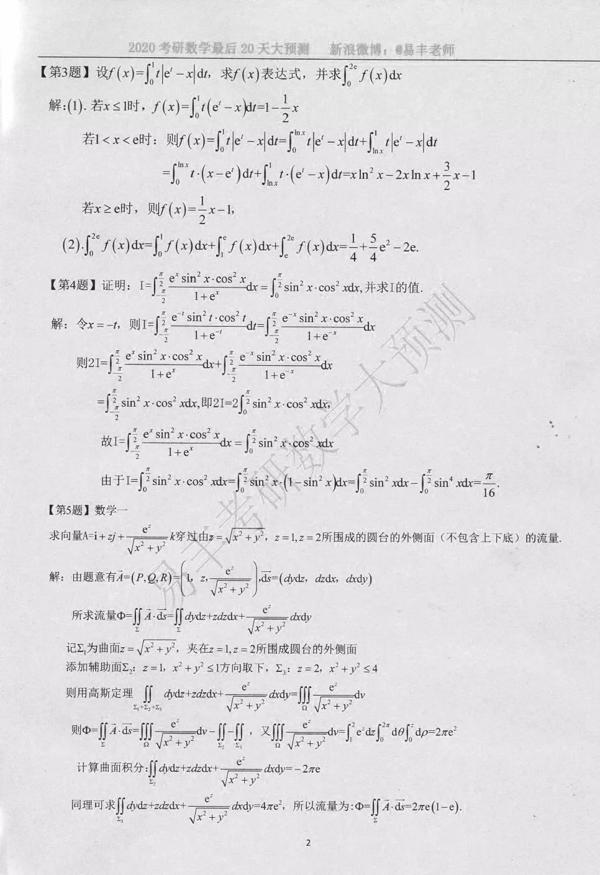 2020考研数学最后20天大预测 新浪微博：@易丰老师
【第3题】设f(x)=∫₀¹ t|eᵗ−x|dt，求f(x)表达式，并求∫₀²ᵉ f(x)dx
解:(1). 若x≤1时，f(x)=∫₀¹ t(eᵗ−x)dt=1−(1/2)x
若1<x<e时：则f(x)=∫₀¹ t|eᵗ−x|dt=∫₀^{lnx} t|eᵗ−x|dt+∫_{lnx}^1 t|eᵗ−x|dt
=∫₀^{lnx} t·(x−eᵗ)dt+∫_{lnx}^1 t·(eᵗ−x)dt=xln²x−2xlnx+(3/2)x−1
若x≥e时，则f(x)=(1/2)x−1,
(2).∫₀^{2e} f(x)dx=∫₀¹ f(x)dx+∫₁^e f(x)dx+∫_e^{2e} f(x)dx=1/4+(5/4)e²−2e.
【第4题】证明：I=∫_{-π/2}^{π/2} (eˣsin²x·cos²x)/(1+eˣ)dx=∫₀^{π/2} sin²x·cos²xdx,并求I的值.
解：令x=−t，则I=∫_{-π/2}^{π/2} (e⁻ᵗsin²t·cos²t)/(1+e⁻ᵗ)dt=∫_{-π/2}^{π/2} (e⁻ˣsin²x·cos²x)/(1+e⁻ˣ)dx
则2I=∫_{-π/2}^{π/2} (eˣsin²x·cos²x)/(1+eˣ)dx+∫_{-π/2}^{π/2} (e⁻ˣsin²x·cos²x)/(1+e⁻ˣ)dx
=∫_{-π/2}^{π/2} sin²x·cos²xdx,即2I=2∫₀^{π/2} sin²x·cos²xdx,
故I=∫_{-π/2}^{π/2} (eˣsin²x·cos²x)/(1+eˣ)dx=∫₀^{π/2} sin²x·cos²xdx
由于I=∫₀^{π/2} sin²x·cos²xdx=∫₀^{π/2} sin²x·(1−sin²x)dx=∫₀^{π/2} sin²xdx−∫₀^{π/2} sin⁴xdx=π/16.
【第5题】数学一
求向量A=i+zj+(e^z/√(x²+y²))k穿过由z=√(x²+y²), z=1,z=2所围成的圆台的外侧面（不包含上下底）的流量.
解：由题意有A⃗=(P,Q,R)=(1, z, e^z/√(x²+y²)),ds⃗=(dydz, dzdx, dxdy)
所求流量Φ=∬_Σ A⃗·ds⃗=∬_Σ dydz+zdzdx+(e^z/√(x²+y²))dxdy
记Σ₁为曲面z=√(x²+y²)，夹在z=1,z=2所围成圆台的外侧面
添加辅助面Σ₂：z=1, x²+y²≤1方向取下，Σ₃：z=2, x²+y²≤4
则用高斯定理 ∬_{Σ₁+Σ₂+Σ₃} dydz+zdzdx+(e^z/√(x²+y²))dxdy=∭_Ω (e^z/√(x²+y²))dv
则Φ=∬_Σ A⃗·ds⃗=∭_Ω (e^z/√(x²+y²))dv−∬_{Σ₂}−∬_{Σ₃}，又∭_Ω (e^z/√(x²+y²))dv=∫₁² e^z dz∫₀^{2π} dθ∫₀^z dρ=2πe²
计算曲面积分：∬_{Σ₂} dydz+zdzdx+(e^z/√(x²+y²))dxdy=−2πe
同理可求∬_{Σ₃} dydz+zdzdx+(e^z/√(x²+y²))dxdy=4πe²，所以流量为:Φ=∬_Σ A⃗·ds⃗=2πe(1−e).
易丰考研数学大预测
2